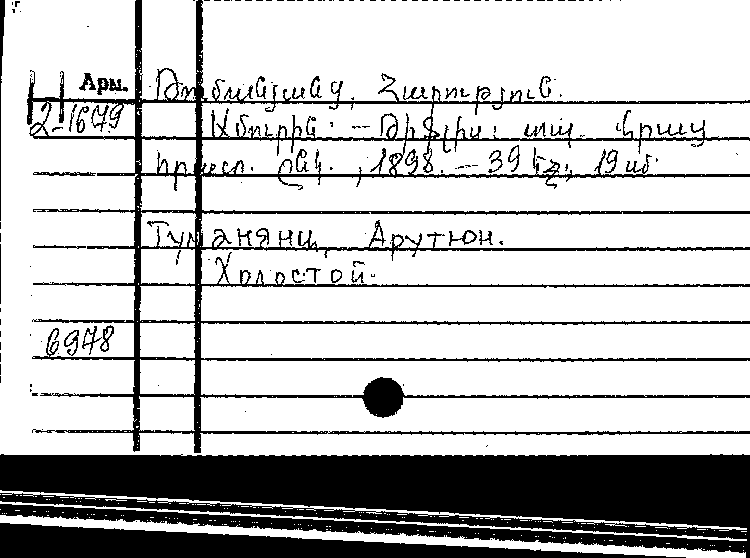 Арм.
Թումանյանց, Հարություն.
2-1679
Ամուրին: – Թիֆլիս: տպ. Վրաց
հրատ. ընկ., 1898. – 39 էջ, 19 սմ.
Туманянц, Арутюн.
Холостой.
6978